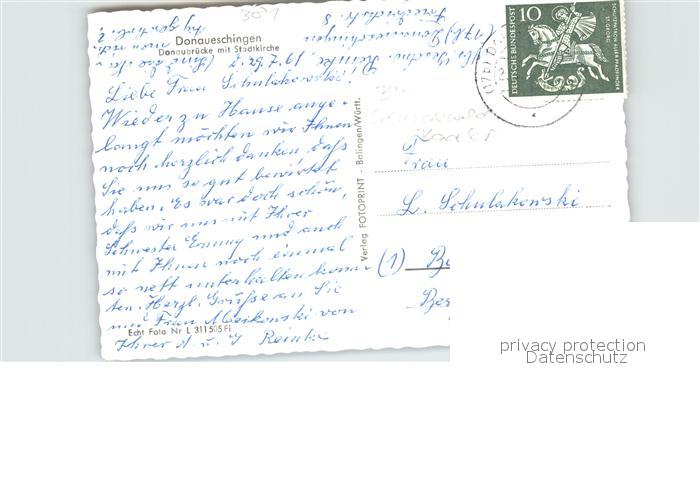 30-1
Donaueschingen
Donaubrücke mit Stadtkirche
Liebe Frau Schulakowski!
Wieder zu Hause ange-
langt möchten wir Ihnen
noch herzlich danken, daß
Sie uns so gut bewirtet
haben. Es war doch schön,
daß wir uns mit Ihrer
Schwester Emmy und auch
mit Ihnen noch einmal
so nett unterhalten konn-
ten. Herzl. Grüße an Sie
und Frau Meikowski von
Ihrer A. u. G Reinke
Echt Foto Nr L 311 505 Fi
Verlag FOTOPRINT - Balingen/Württ.
10
DEUTSCHE BUNDESPOST
SCHUTZPATRON ALLER PFADFINDER
ST. GEORG
Frau
L. Schulakowski
(1) Be
Ber
privacy protection
Datenschutz